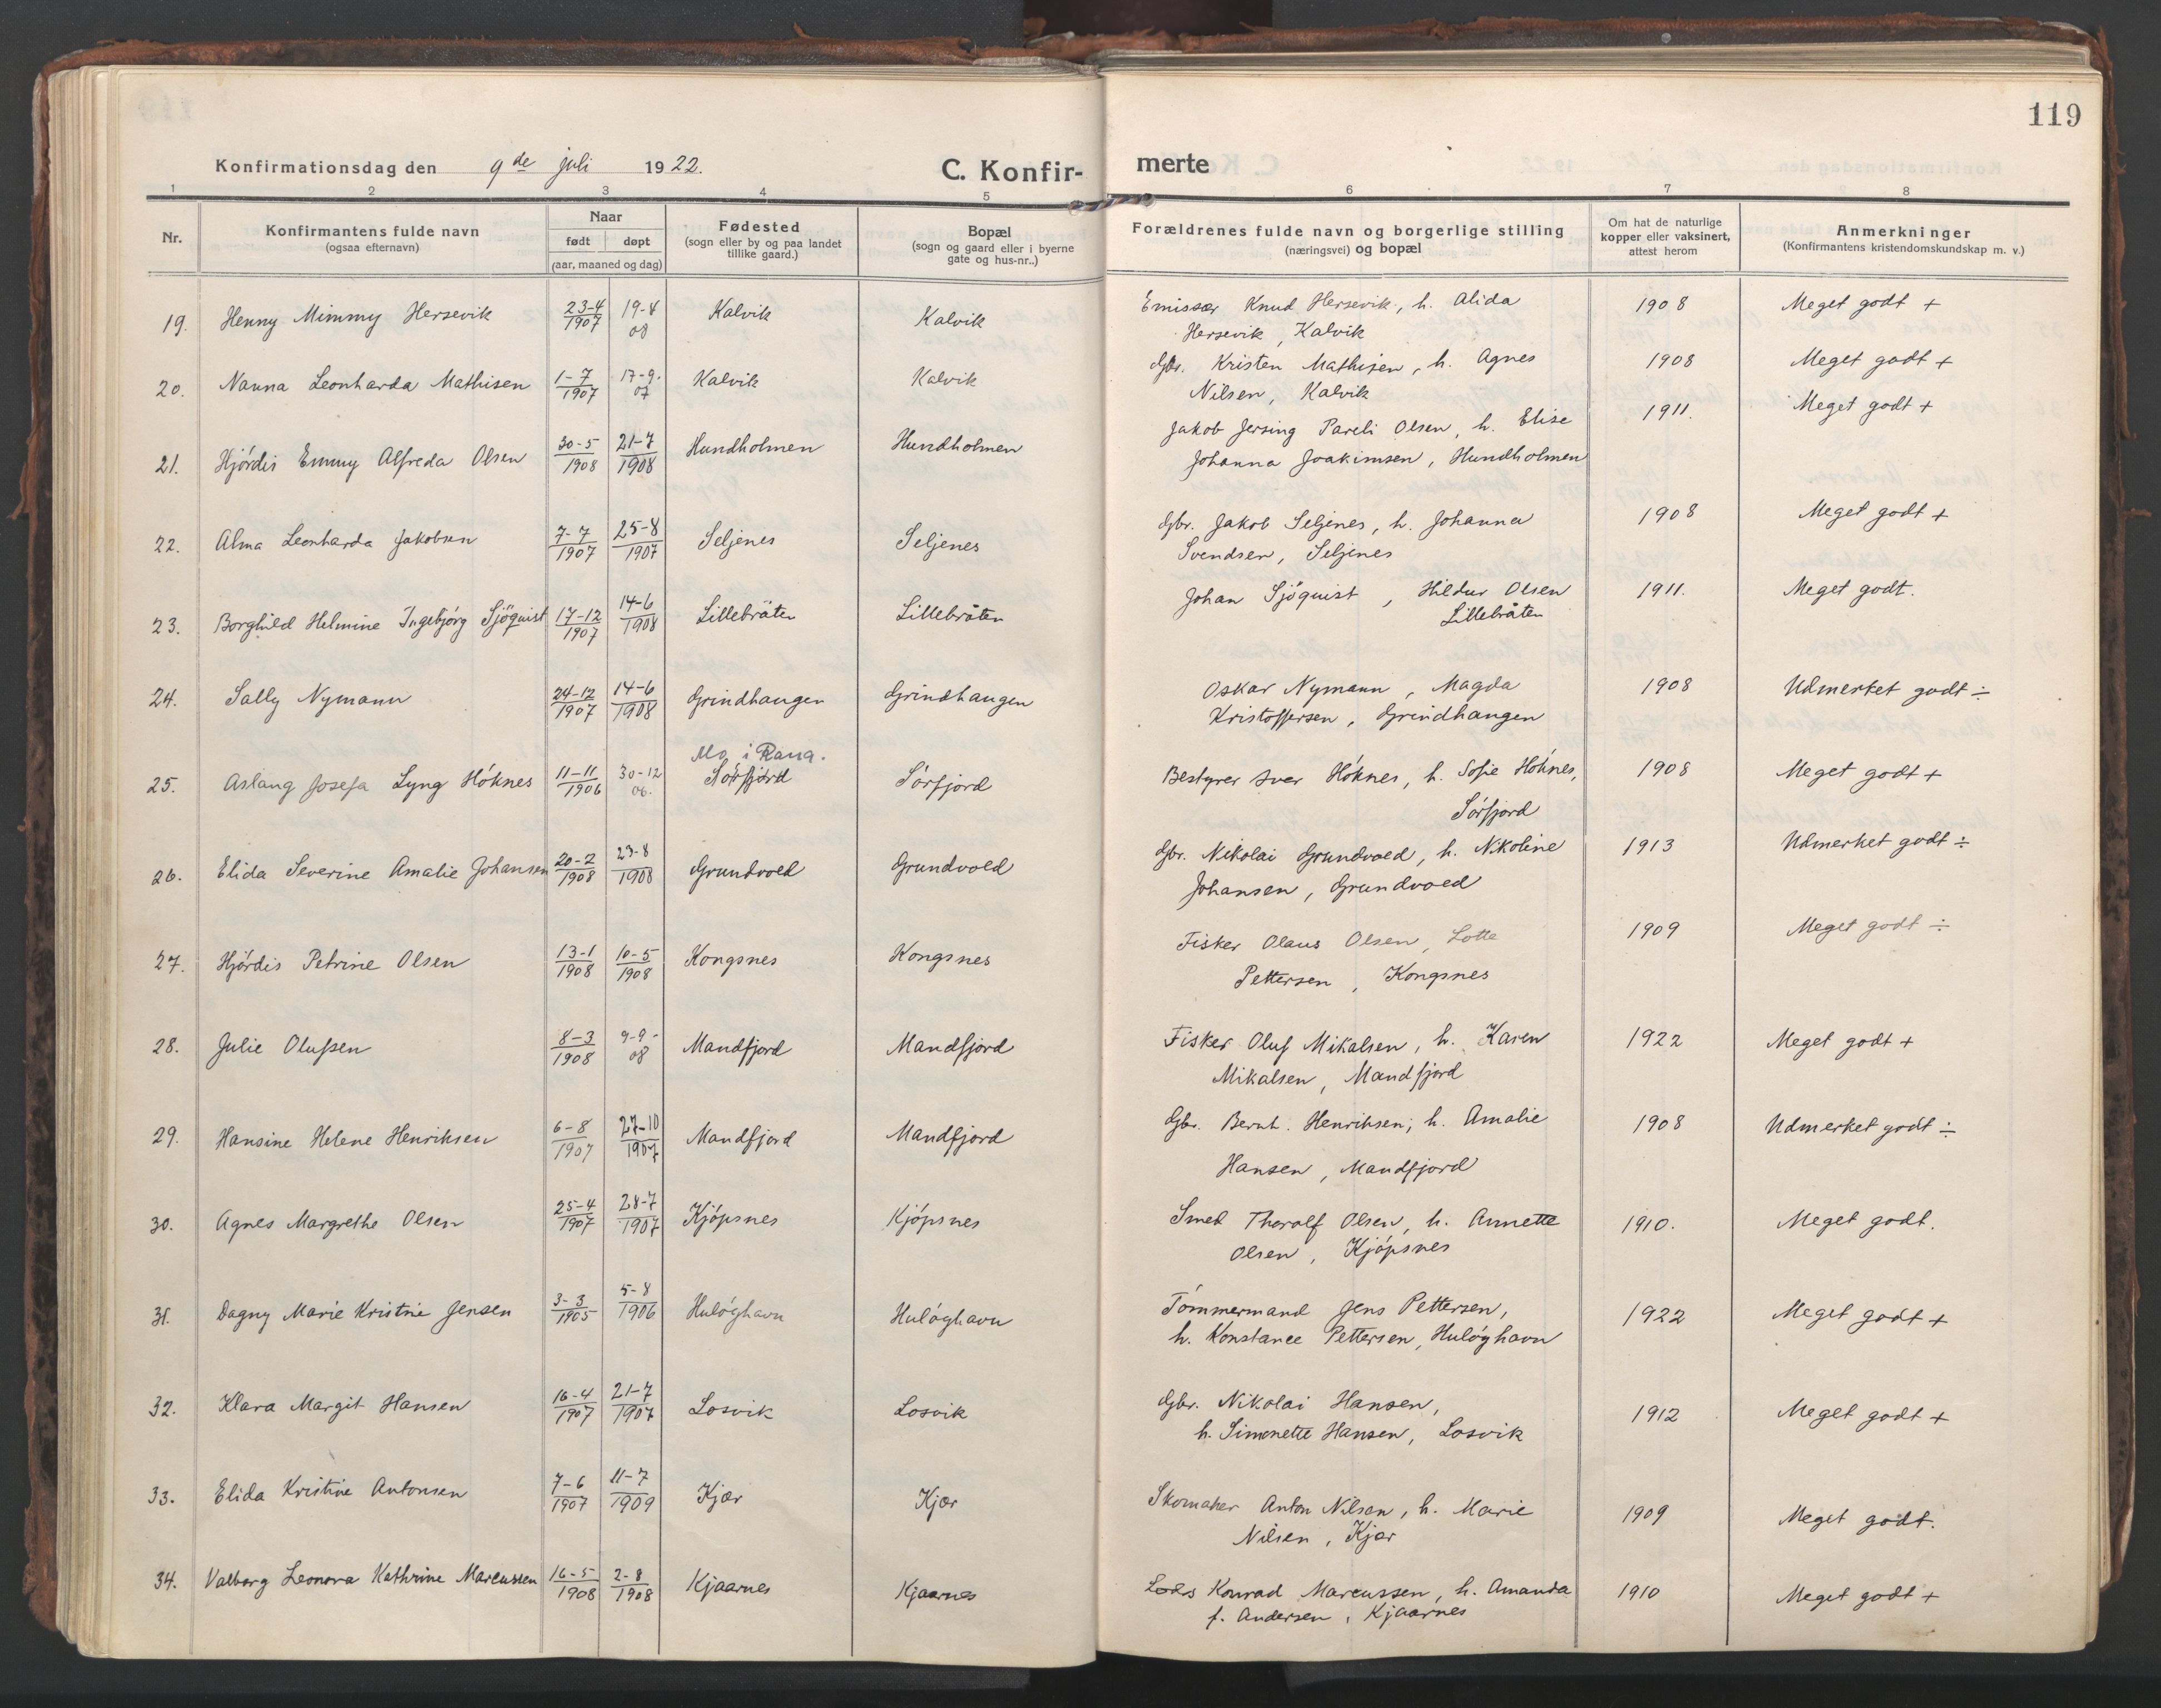 119
Konfirmationsdag den 9de juli 1922.
C. Konfir-
merte
1 2 3 4 5 6 7 8
Nr.
Konfirmantens fulde navn
(ogsaa efternavn)
Naar
født døpt
(aar, maaned og dag)
Fødested
(sogn eller by og paa landet
tillike gaard.)
Bopæl
(sogn og gaard eller i byerne
gate og hus-nr..)
Forældrenes fulde navn og borgerlige stilling
(næringsvei) og bopæl
Om hat de naturlige
kopper eller vaksinert,
attest herom
Anmerkninger
(Konfirmantens kristendomskundskap m. v.)
19. Henny Mimmy Hersevik 23-4 1907 19-4 08 Kalvik Kalvik Emissær Knud Hersevik, h. Alida 1908 Meget godt +
Hersevik, Kalvik
20. Nanna Leonharda Mathisen 1-7 1907 17-9- 07 Kalvik Kalvik Gbr. Kristen Mathisen, h. Agnes 1908 Meget godt +
Nilsen, Kalvik
21. Hjördis Emmy Alfreda Olsen 30-5 1908 21-7 1908 Hundholmen Hundholmen Jakob Jersing Pareli Olsen, h. Elise 1911. Meget godt +
Johanna Joakimsen, Hundholmen
22. Alma Leonharda Jakobsen 7-7 1907 25-8 1907 Seljenes Seljenes Gbr. Jakob Seljenes, h. Johanna 1908 Meget godt +
Svendsen, Seljenes
23. Borghild Helmine Ingebjörg Sjöquist 17-12 1907 14-6 1908 Lillebråten Lillebråten Johan Sjöquist, Hildur Olsen 1911. Meget godt.
Lillebråten
24. Sally Nymann 24-12 1907 14-6 1908 Grindhaugen Grindhaugen Oskar Nymann, Magda 1908 Udmerket godt ÷
Kristoffersen, Grindhaugen
Mo i Rana.
25. Aslaug Josefa Lyng Höknes 11-11 1906 30-12 06. Sörfjord Sörfjord Bestyrer Iver Höknes, h. Sofie Höknes, 1908 Meget godt +
Sörfjord
26. Elida Severine Amalie Johansen 20-2 1908 23-8 1908 Grundvold Grundvold Gbr. Nikolai Grundvold, h. Nikoline 1913 Udmerket godt ÷
Johansen, Grundvold
27. Hjördis Petrine Olsen 13-1 1908 10-5 1908 Kongsnes Kongsnes Fisker Olaus Olsen, Lotte 1909 Meget godt ÷
Pettersen, Kongsnes
28. Julie Olufsen 8-3 1908 9-9- 08 Mandfjord Mandfjord Fisker Oluf Mikalsen, h. Karen 1922 Meget godt +
Mikalsen, Mandfjord
29. Hansine Helene Henriksen 6-8 1907 27-10 1907 Mandfjord Mandfjord Gbr. Bernt. Henriksen, h. Amalie 1908 Udmerket godt ÷
Hansen, Mandfjord
30. Agnes Margrethe Olsen 25-4 1907 28-7 1907 Kjöpsnes Kjöpsnes Smed Thoralf Olsen, h. Annette 1910. Meget godt.
Olsen, Kjöpsnes
31. Dagny Marie Kristine Jensen 3-3 1905 5-8 1906 Hulöyhavn Hulöyhavn Tömmermand Jens Pettersen, 1922 Meget godt +
h. Konstance Pettersen, Hulöyhavn
32. Klara Margit Hansen 16-4 1907 21-7 1907 Losvik Losvik Gbr. Nikolai Hansen, 1912 Meget godt +
h. Simonette Hansen, Losvik
33. Elida Kristine Antonsen 7-6 1907 11-7 1909 Kjær Kjær Skomaker Anton Nilsen, h. Marie 1909 Meget godt.
Nilsen, Kjær
34. Valborg Leonora Kathrine Marcussen 16-5 1908 2-8 1908 Kjaarnes Kjaarnes Lods Konrad Marcussen, h. Amanda 1910 Meget godt +
f. Andersen, Kjaarnes